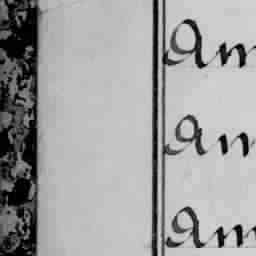 Am
An
Am